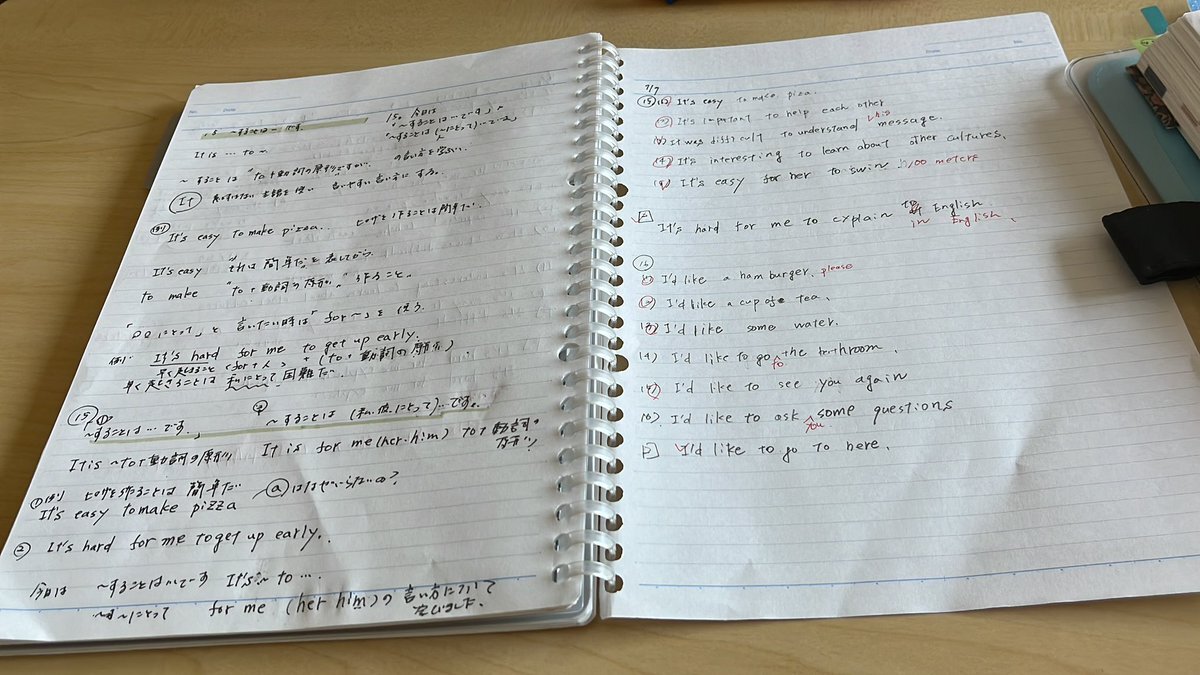 15 ~することは…です。
15。今日は
「~することは…です」と
「~することは(~にとって)…です」
の言い方を学ぶ。
It is … to ~
~することは "to+動詞の原形ですが、
It 言い方にする。
(例)
It's easy to make pizza. ピザを作ることは簡単だ。
It's easy "それは簡単だ"を表してから
to make "to+動詞の原形" 作ること。
「〇〇にとって」と言いたい時は「for~」を使う。
例. It's hard for me to get up early.
早く起きること (for+人) + (to+動詞の原形)
早く起きることは私にとって困難だ。
15 ① ~することは…です。
② ~することは(私、彼、にとって)…です。
It is ~ to+動詞の原形
It is for me (her.him) to+動詞の原形
①例) ピザを作ることは簡単だ
aはなぜいらないの?
It's easy to make pizza
② It's hard for me to get up early.
今日は ~することは…です It's ~ to …
~にとって for me (her him)の言い方について
学びました。
7/7
15 (1) It's easy to make piza.
(2) It's important to help each other
(3) It was difficult to understand this message.
(4) It's interesting to learn about other cultures.
(5) It's easy for her to swin 100 meters
E It's hard for me to explain English
in English.
16
(1) I'd like a hamburger, please
(2) I'd like a cup of tea.
(3) I'd like some water.
(4) I'd like to go to the bathroom.
(5) I'd like to see you again
(6) I'd like to ask you some questions
E I'd like to go to here.